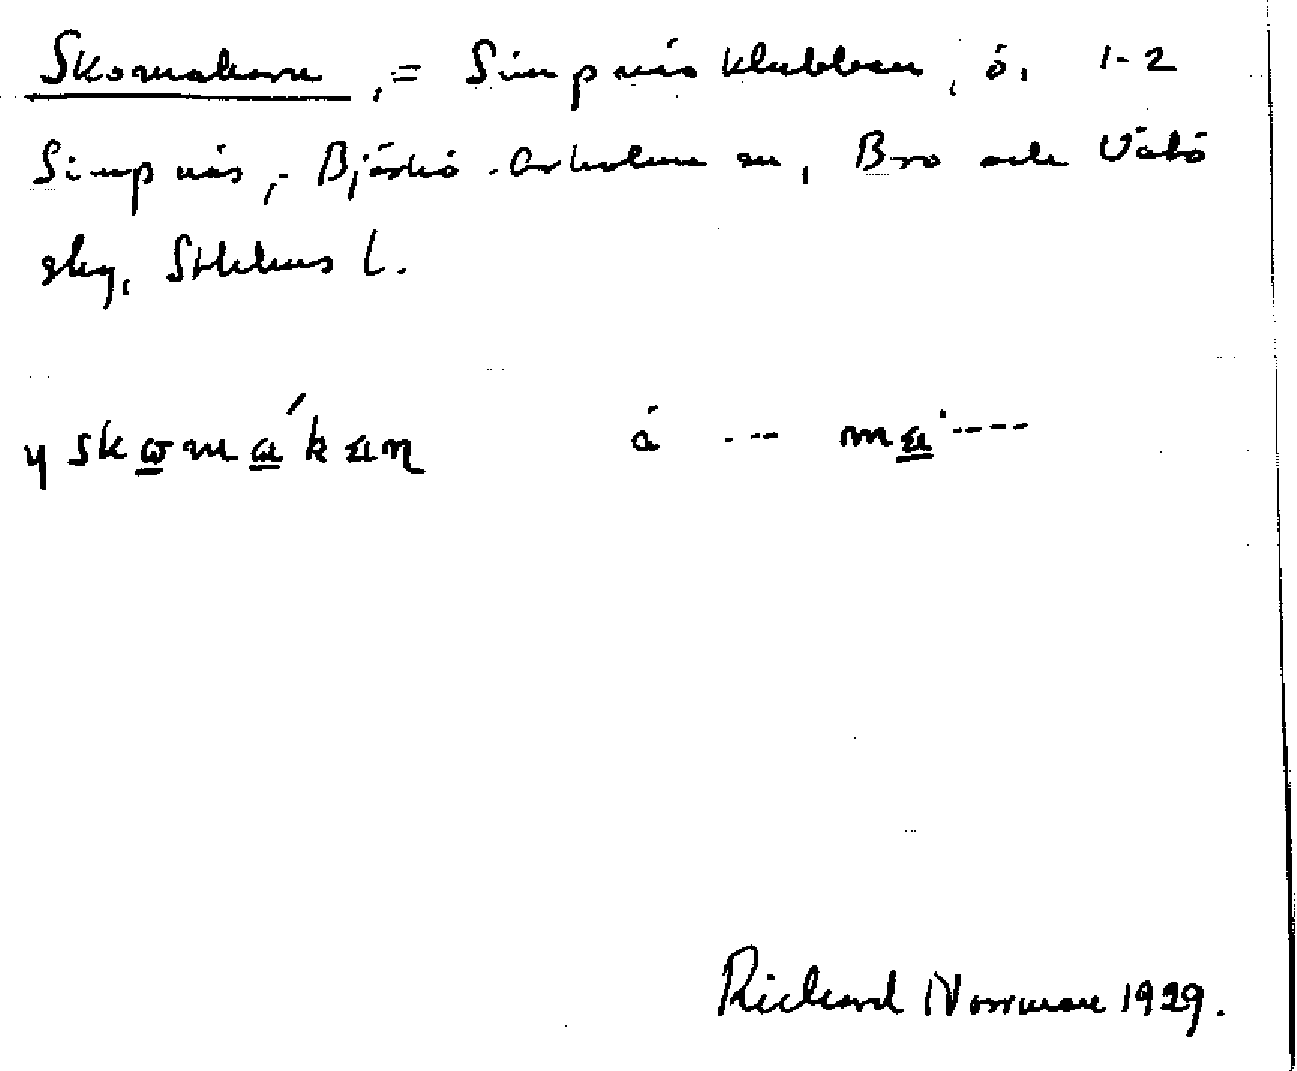 Skomakarn, = Simpnäsklubben, ö. 1-2
Simpnäs, Björkö-Arholma sn, Bro och Vätö
skg, Sthlms l.
y skωmá̱kan å --- ma̱'----
Richard Norrman 1929.